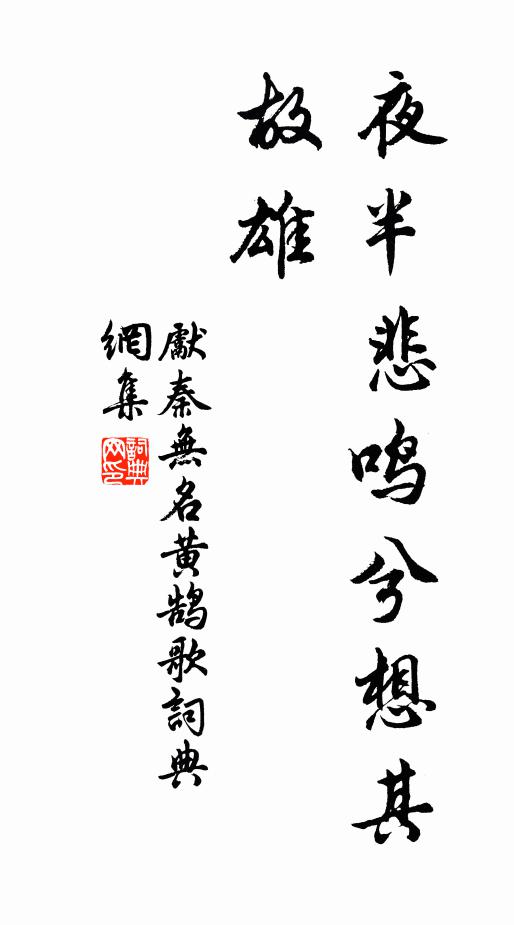 夜半悲鸣兮想其
故雄
獻秦無名黄鹄歌詞典
網集
詞典
网印